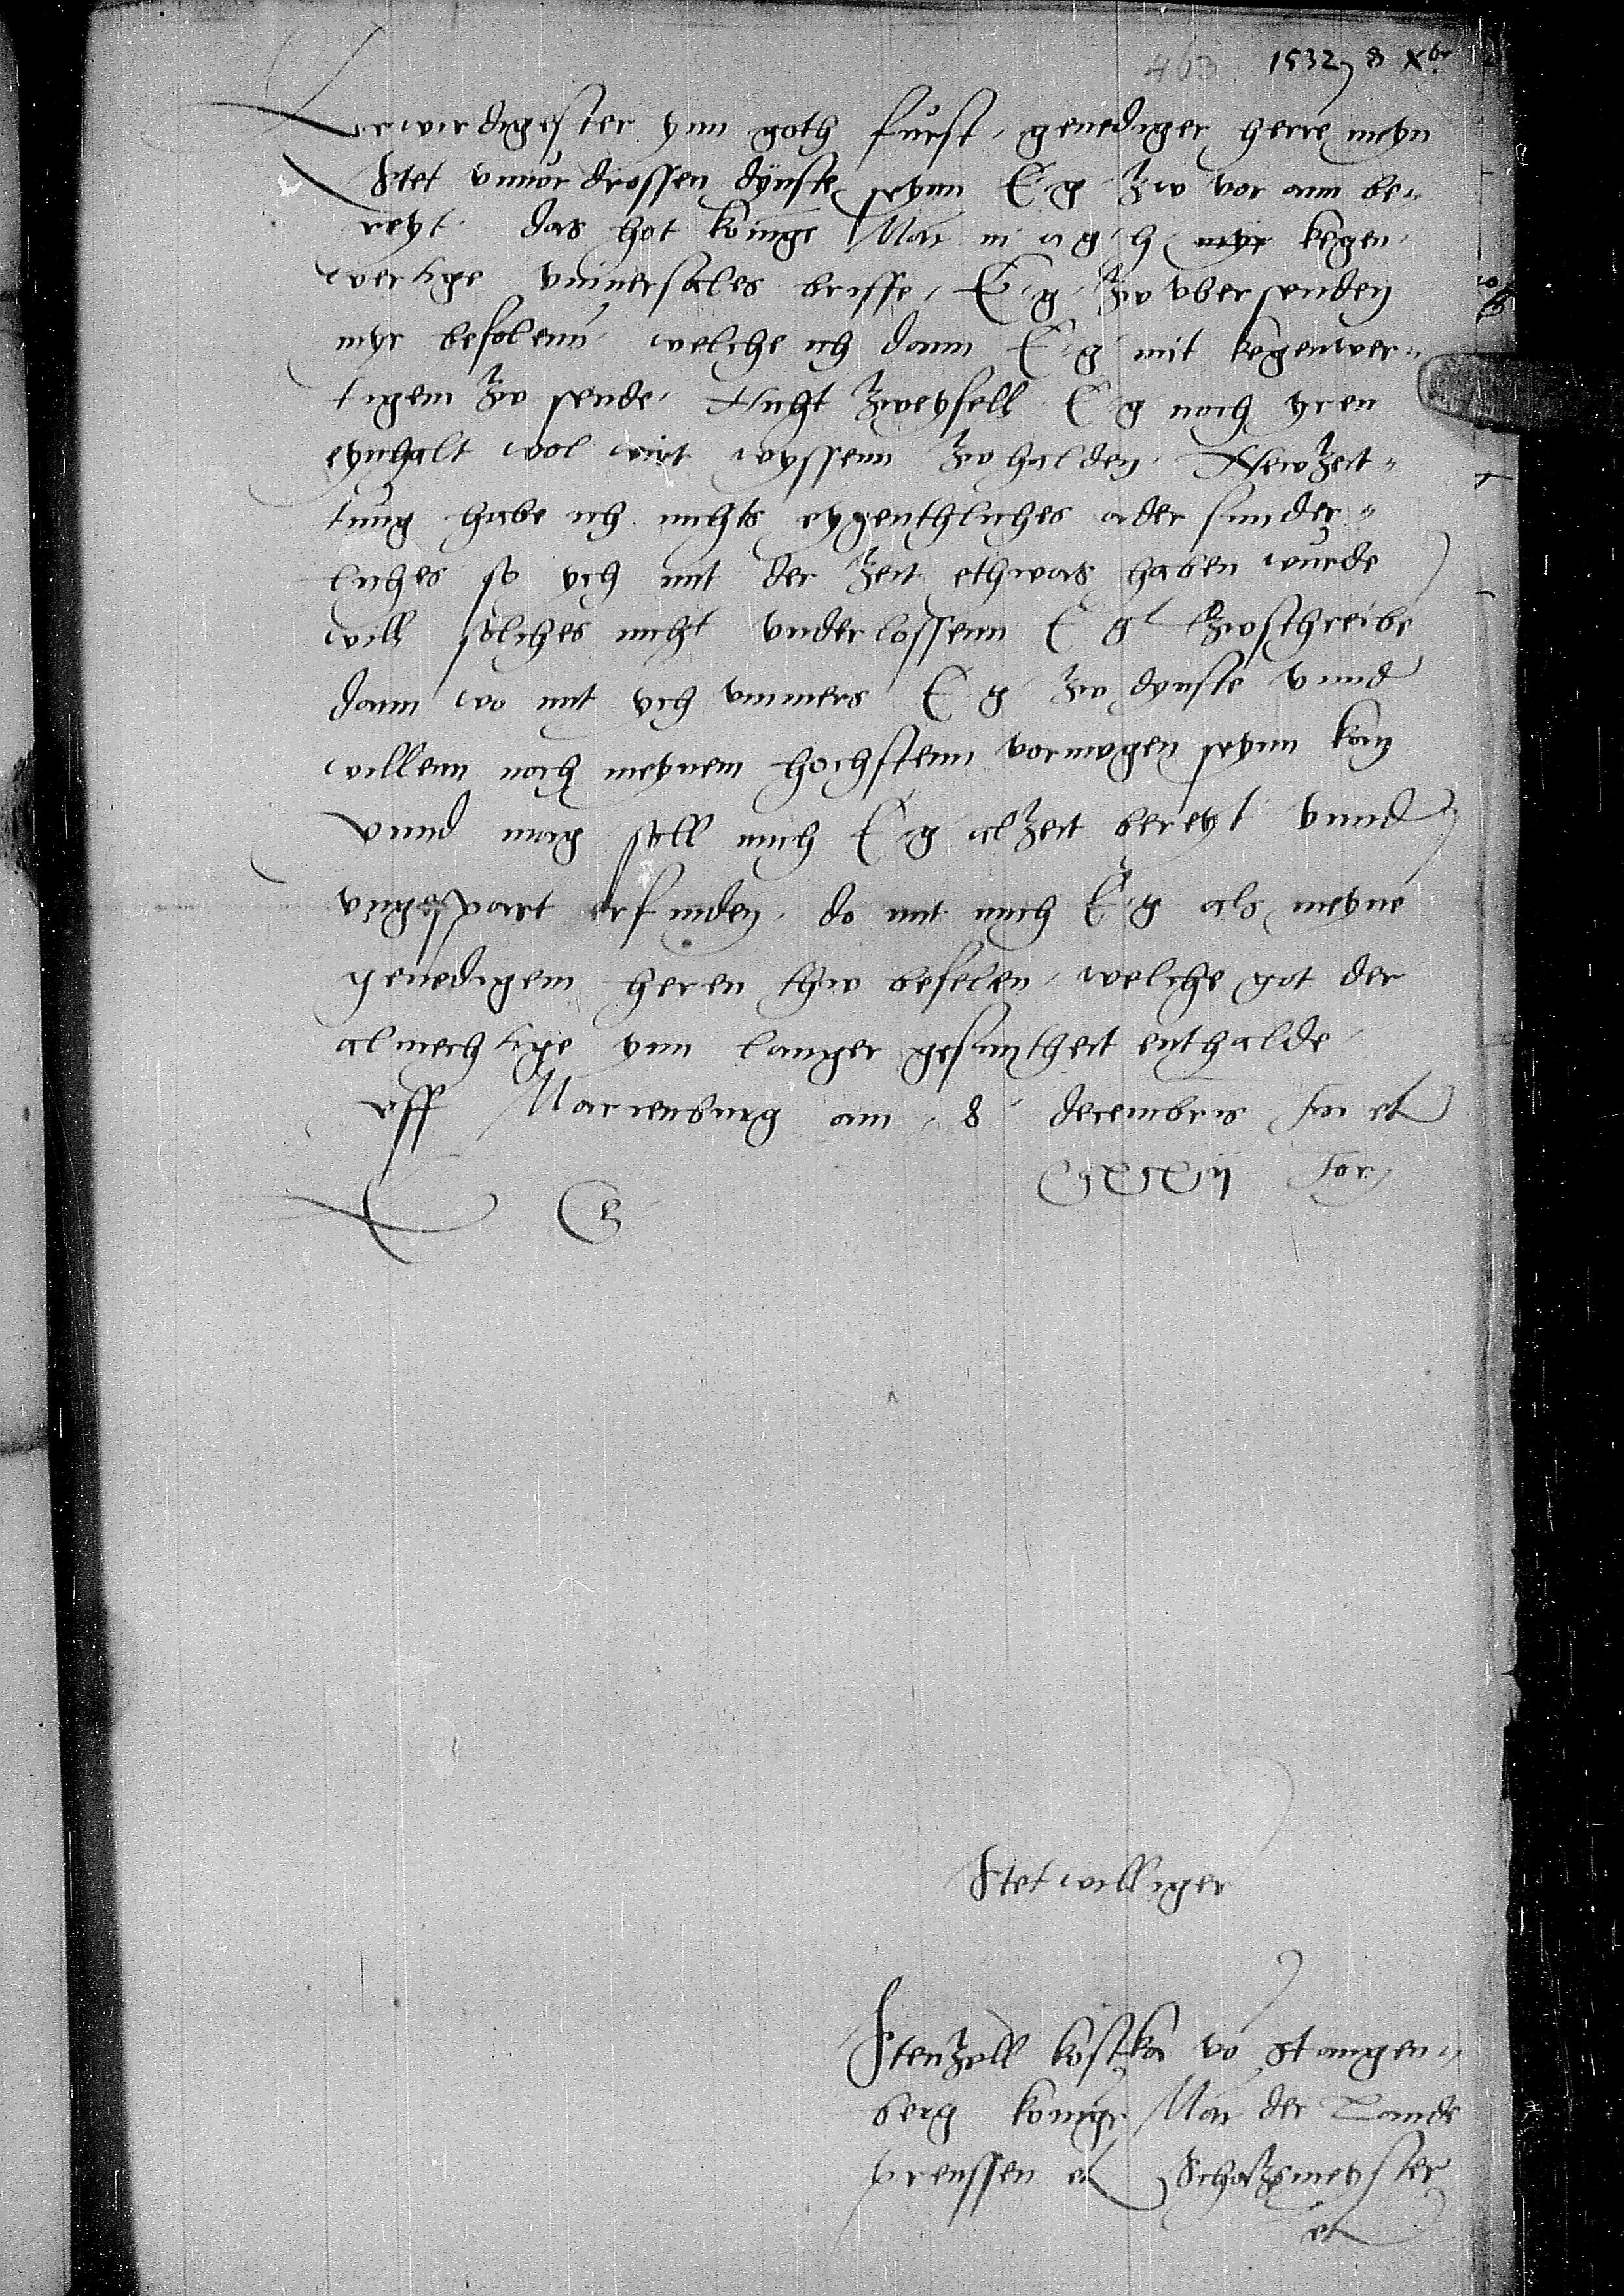 463 1532, 8 Xbr
Erwirdigester ynn goth furst, genediger herre meyn
stet vnuordrossen dynste seynn E g zw vor ann be„
reyt. das hot konige Mat m a g h myr kegen„
wertige vniuersales briffe, E g zw vbersenden
myr befolenn, welche ich dann E g mit kegenwer„
tigem zw sende, Nicht zweyfell E g noch yren
eynhalt wol wirt wyssenn zw halden. New zeit„
tung habe ich nichts eygenthliches ader sunder„
liches so ych mit der zeit ethwas haben wurde
will solches nicht vnderlossenn E g zwschreibe
dann wo mit ych ymmers E g zw dynste vnnd
willenn noch meynem hochstenn vormogen seynn kan
vnnd mag soll mich E g alzeit bereyt vnnd
vngespart erfinden, do mit mich E g als meyne
genedigem heren thw befelen, welche got der
almechtige ynn langer gesuntheit enthalde
vff Marienburg am 8 decembris im et
XXXII Jor
E G
Stetwilliger
Stenzell kostka vo Stangen„
berg konige Mat der Lande
preussen et Schatzmeyster
et